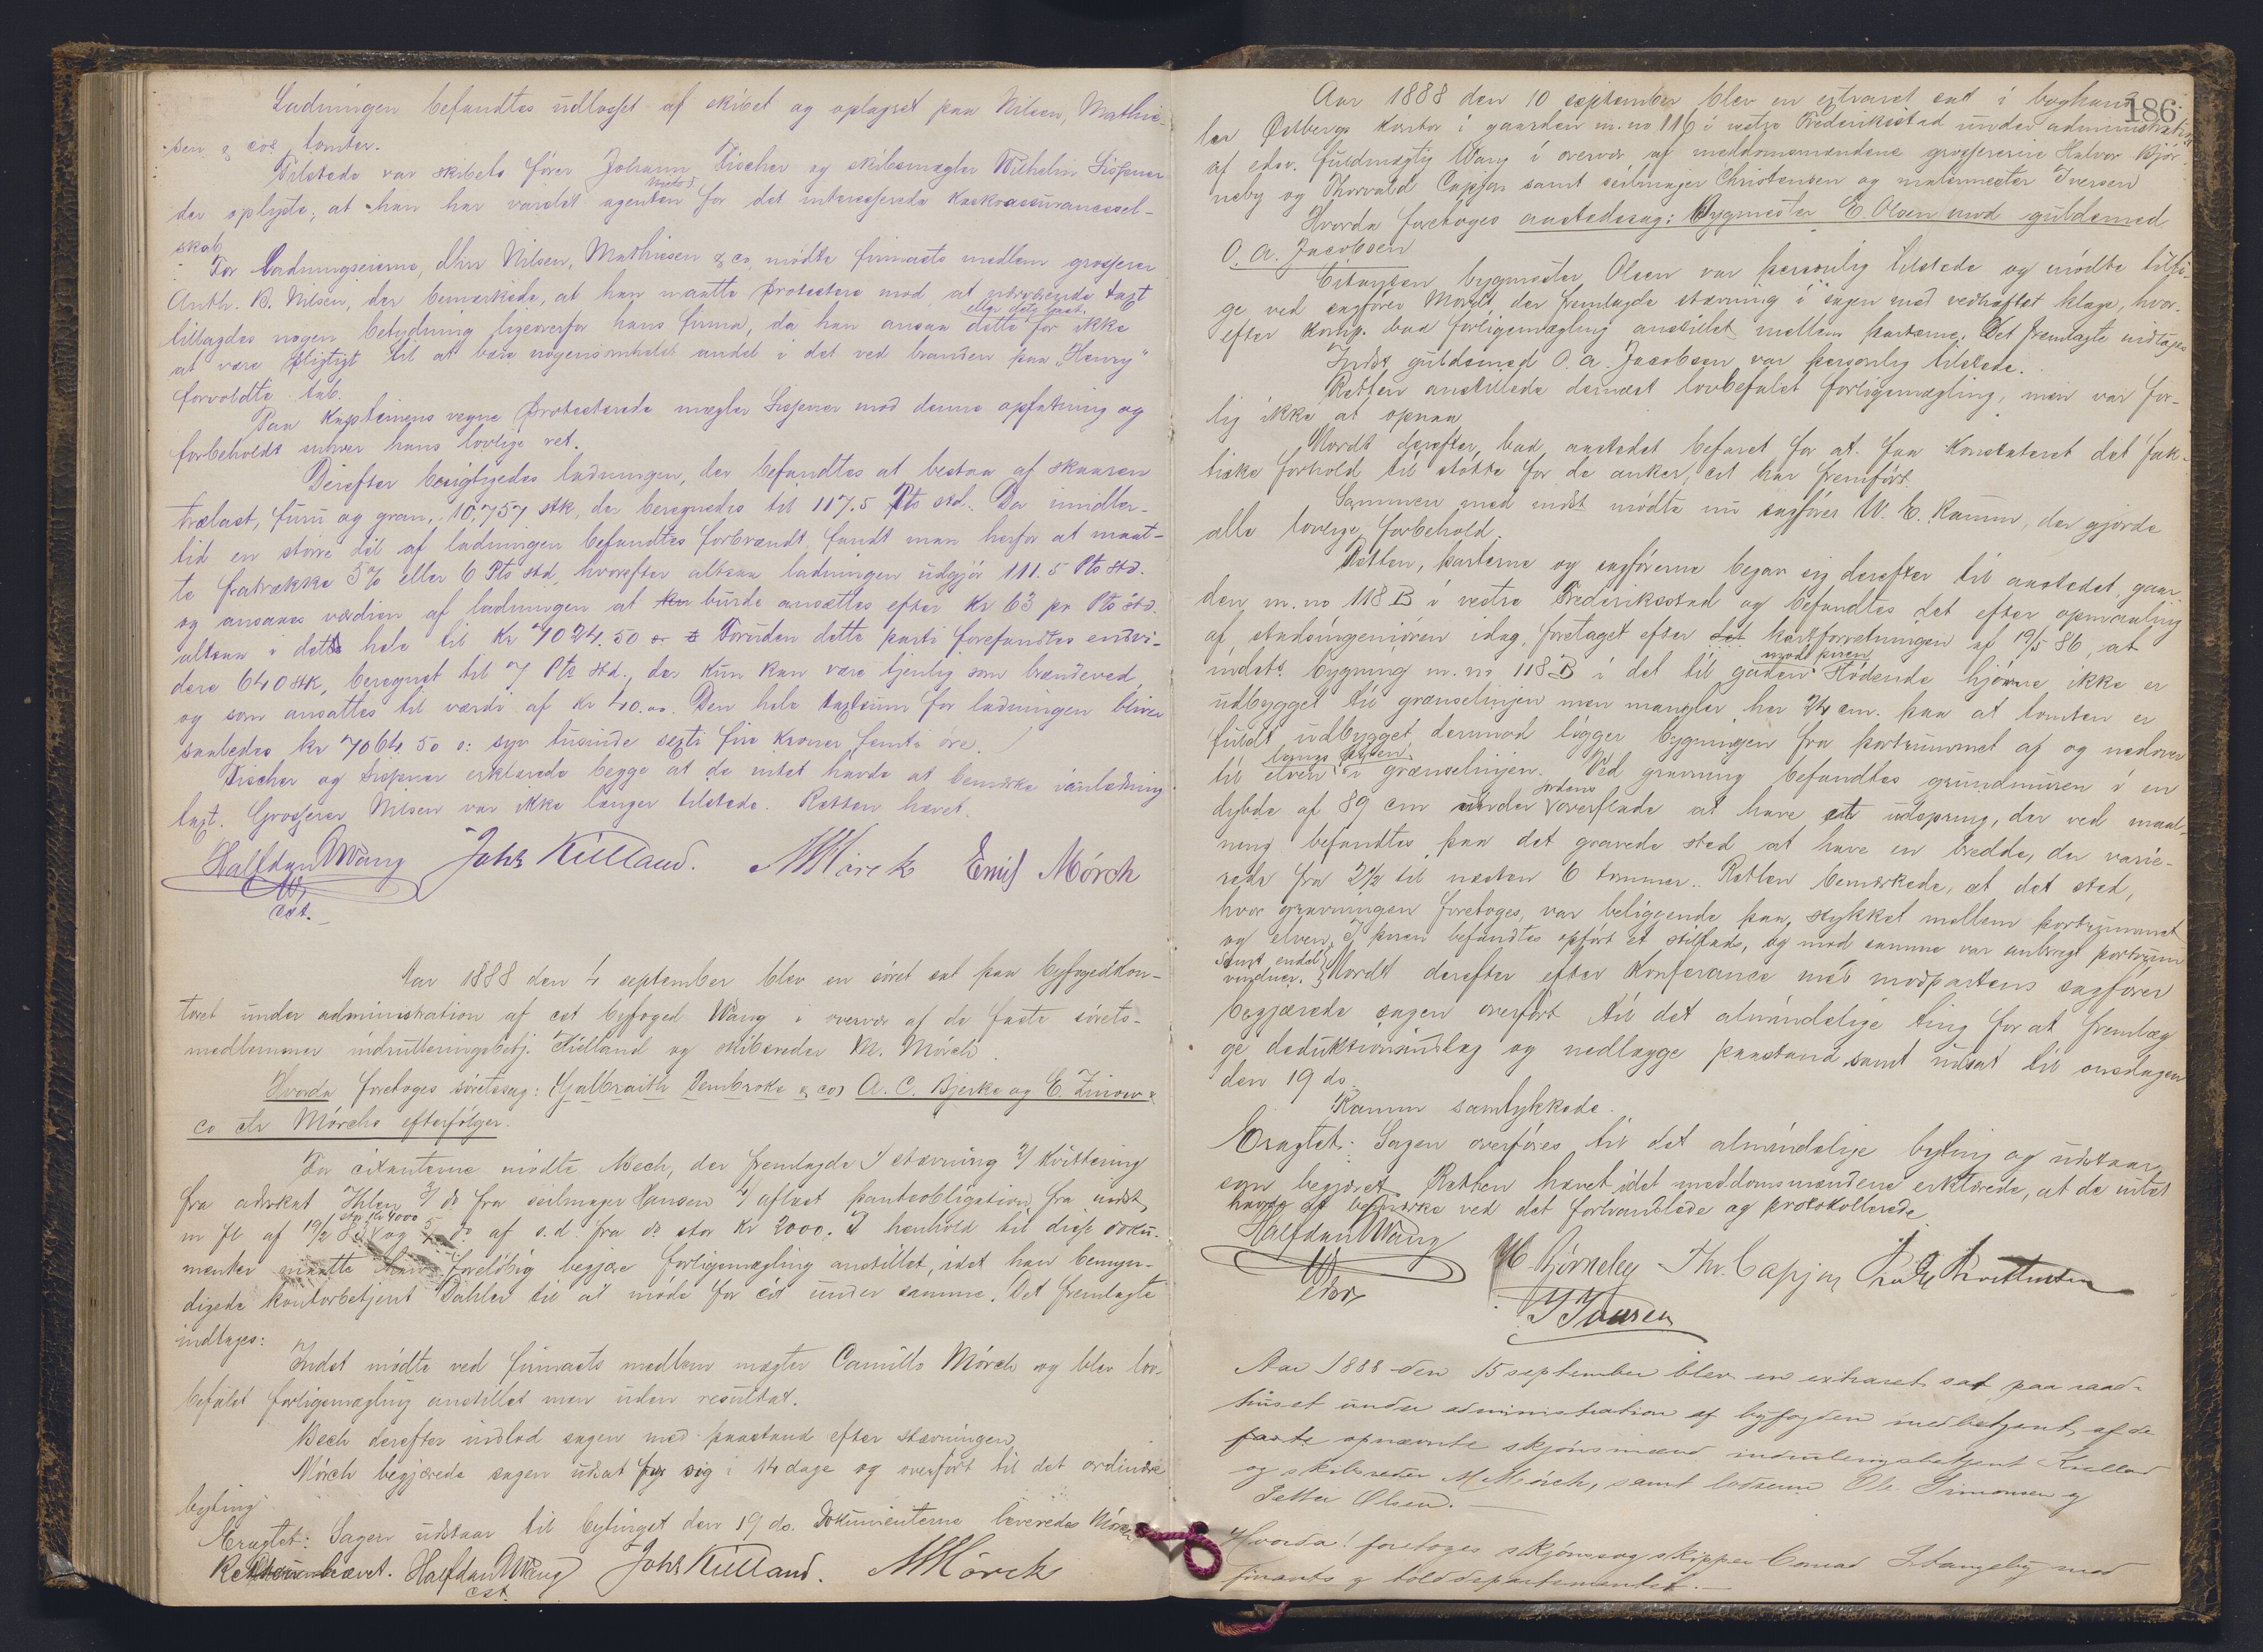 Ladningen befandtes udlosset af skibet og oplagret paa Nilsen, Mathie-
sen & cos tomter.
Tilstede var skibets fører Johann Fischer og skibsmægler Wilhelm
der oplyste, at han har varslet agenten for det interesserede Kaskoassuransesel-
skab
For Ladningseierne, dhrr Nilsen, Mathiesen & co mødte firmaets medlem grosserer
Anth. B. Nilsen, der bemærkede, at han maatte protestere mod at nærværende taxt
tillagdes nogen betydning ligeoverfor hans firma, da han ansaa dette for ikke
at være pligtigt til at bære nogensomhelst andel i det ved branden paa "Henry"
forvoldte tab.
Paa Kapteinens vegne protesterede mægler mod denne opfatning og
forbeholdt enhver hans lovlige ret.
Derefter besigtigedes ladningen, der befandtes at bestaa af skaaren
trælast, furu og gran, 10,757 stk, der beregnedes til 117.5 Pts std. Da imidler-
tid en større del af ladningen befandtes forbrændt, fandt man herfor at maat-
te fratrække 5% eller 6 Pts std, hvorefter altsaa ladningen udgjør 111.5 Pts std.
og ansaaes værdien af ladningen at burde ansættes efter Kr 63 pr Pts std.
altsaa i dets hele til Kr 7024.50 Foruden dette parti forefandtes endvi-
dere 640 stk, beregnet til 7 Pts std., der kun kan være tjenlig som brændeved,
og som ansattes til værdi af Kr 40.00. Den hele taxtsum for ladningen bliver
saaledes kr 7064.50 o: syv tusinde sexti fire kroner femti øre.
Fischer og erklærede begge at de intet havde at bemærke i anledning
taxt. Grosserer Nilsen var ikke længer tilstede. Retten hævet.
Halfdan Wang Johs Kielland. M Mørch Emil Mørch
cst.
Aar 1888 den 4 september blev en søret sat paa byfogedkon-
toret under administration af cst byfoged Wang i overvær af de faste sørets-
medlemmer indrulleringsbetj. Kielland og skibsreder M. Mørch.
Hvorda foretoges søretssag: Galbraith Pembroke & co, A. C. Bjerke og E. Zinow &
co ctr Mørchs efterfølger.
For citanterne mødte Mech, der fremlagde 1/ stævning 2/ kvittering
fra advokat Ihlen 3/ do fra seilmager Hansen 4/ aflæst panteobligation fra indst.
m fl af 19/2 83 stor Kr 4000 og 5/ do af s.d. fra do stor Kr 2000. I henhold til disse doku-
menter maatte han foreløbig begjære forligsmægling anstillet, idet han bemyn-
digede kontorbetjent Dahler til at møde for cit under samme. Det fremlagte
indtages:
Indst mødte ved firmaets medlem mægler Camillo Mørch og blev lov-
befalet forligsmægling anstillet men uden resultat.
Mech derefter indlod sagen med paastand efter stævningen
Mørch begjærede sagen udsat for sig i 14 dage og overført til det ordinære
byting
Eragtet: Sagen udstaar til bytinget den 19 ds. Dokumenterne leveredes Mørch
Retten hævet. Halfdan Wang Johs Kielland. M Mørch
cst
186.
Aar 1888 den 10 september blev en extraret sat i boghand-
ler Østbergs kontor i gaarden m. no 116 i vestre Frederikstad under administration
af edsv. fuldmægtig Wang i overvær af meddomsmændene grossererne Halvor Bjør-
neby og Thorvald Capjon samt seilmager Christensen og malermester Iversen
Hvorda foretoges aastedssag: Bygmester E. Olsen mod guldsmed
O. A. Jacobsen
Citanten bygmester Olsen var personlig tilstede og mødte tilli-
ge ved sagfører Mordt der fremlagde stævning i sagen med vedhæftet klage, hvor-
efter Komp. bad forligsmægling anstillet mellem parterne. Det fremlagte indtages
Indst guldsmed O. A. Jacobsen var personlig tilstede.
Retten anstillede dernæst lovbefalet forligsmægling, men var for-
lig ikke at opnaa
Mordt derefter bad aastedet befaret for at faa konstateret det fak-
tiske forhold til støtte for de anker, cit har fremført.
Sammen med indst mødte nu sagfører W. E. Ramm, der gjorde
alle lovlige forbehold.
Retten, parterne og sagførerne begav sig derefter til aastedet, gaar-
den m. no 118 B i vestre Frederiksstad og befandtes det efter opmaaling
af stadsingeniøren idag, foretaget efter kartforretningen af 19/5 86, at
indsts bygning m. no 118 B i det til gaden mod piren stødende hjørne ikke er
udbygget til grænselinjen men mangler her 24 cm. paa at tomten er
fuldt udbygget derimod ligger bygningen fra portrummet af og nedover
til elven langs piren i grænselinjen. Ved gravning befandtes grundmuren i en
dybde af 89 cm under jordens overflade at have et udspring, der ved maal-
ning befandtes paa det gravede sted at have en bredde, der varie-
rede fra 2 1/2 til næsten 6 tommer. Retten bemærkede, at det sted,
hvor gravningen foretoges, var beliggende paa stykket mellem portrummet
og elven. I piren befandtes opført et stilads, og mod samme var anbragt portrum
samt endel vinduer. Mordt derefter efter Konferance med modpartens sagfører
begjærede sagen overført til det almindelige ting for at fremlæg-
ge deduktionsindlæg og nedlægge paastand samt udsat til onsdagen
den 19 ds.
Ramm samtykkede.
Eragtet: Sagen overføres til det almindelige byting og udstaar
som begjæret. Retten hævet, idet meddomsmændene erklærede, at de intet
havde at bemærke ved det forhandlede og protokollerede
Halfdan Wang H Bjørneby Thv. Capjon
edsv J Iversen
Aar 1888 den 15 september blev en extraret sat paa raad-
huset under administration af byfogden med betjent af de
faste opnævnte skjønsmænd indrulleringsbetjent Kielland
og skibsreder M Mørch, samt lodserne Ole Simonsen og
Petter Olsen.
Hvorda! foretoges skjønssag skipper Conrad Stangeby mod
finants & tolddepartementet.